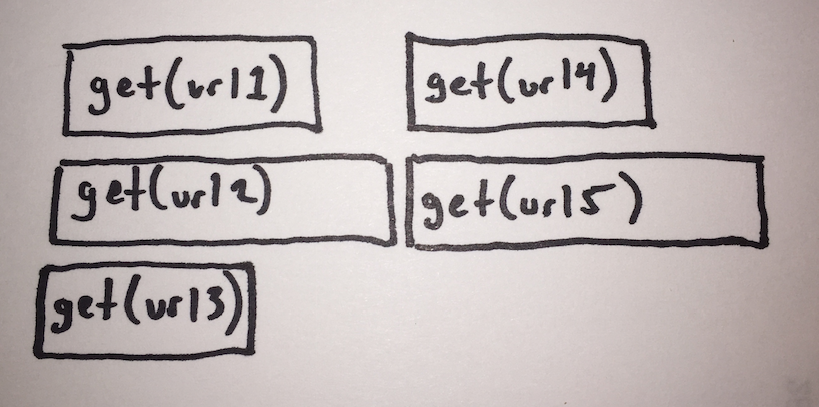 get(url1)
get(url4)
get(url2)
get(url5)
get(url3)